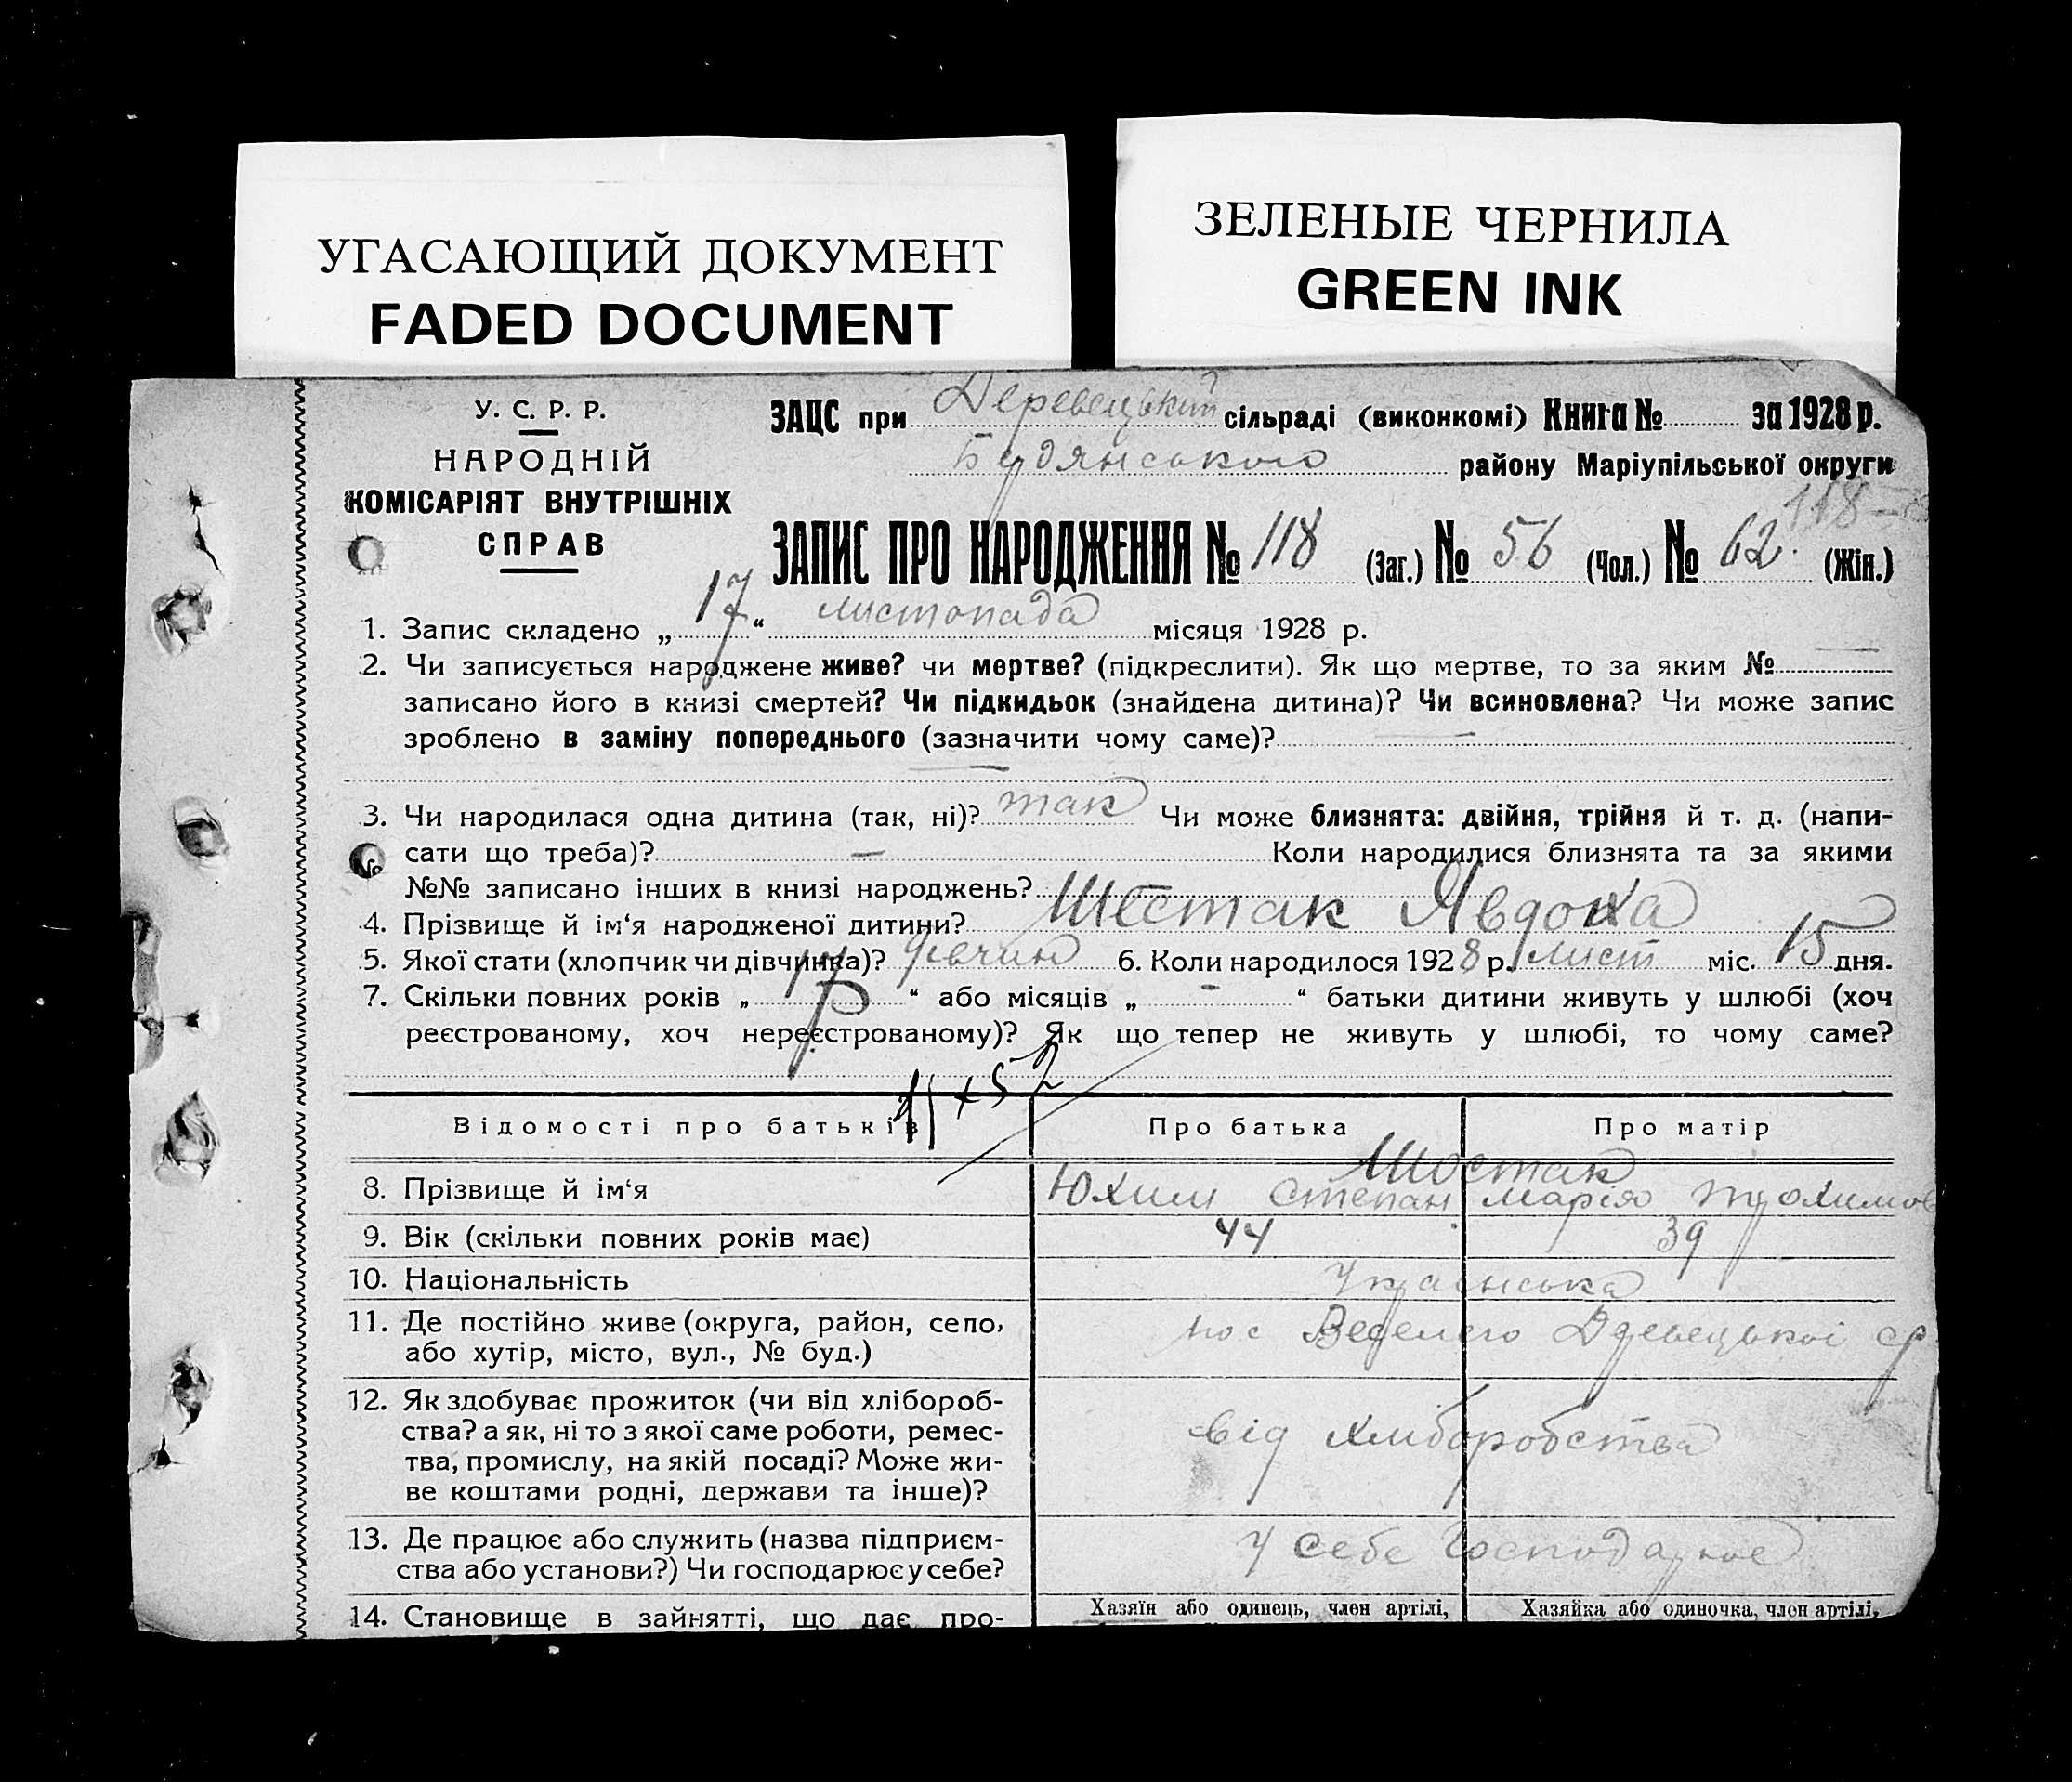 УГАСАЮЩИЙ ДОКУМЕНТ
FADED DOCUMENT
ЗЕЛЕНЫЕ ЧЕРНИЛА
GREEN INK
У. С. Р. Р.
НАРОДНІЙ
КОМІСАРІЯТ ВНУТРІШНІХ
СПРАВ
ЗАЦС при Деревецький сільраді (виконкомі) Книга № за 1928 р.
Будянського району Маріупільської округи
118
ЗАПИС ПРО НАРОДЖЕННЯ № 118 (Заг.) № 56 (Чол.) № 62. (Жін.)
1. Запис складено „ 17 “ листопада місяця 1928 р.
2. Чи записується народжене живе? чи мертве? (підкреслити). Як що мертве, то за яким № —
записано його в книзі смертей? Чи підкидьок (знайдена дитина)? Чи всиновлена? Чи може запис
зроблено в заміну попереднього (зазначити чому саме)? —
—
3. Чи народилася одна дитина (так, ні)? так Чи може близнята: двійня, трійня й т. д. (напи-
сати що треба)? — Коли народилися близнята та за якими
№№ записано інших в книзі народжень?
4. Прізвище й ім‘я народженої дитини? Шестак Явдоха
5. Якої стати (хлопчик чи дівчинка)? дівчин 6. Коли народилося 1928 р. лист міс. 15 дня.
7. Скільки повних років „ 17р “ або місяців „ - “ батьки дитини живуть у шлюбі (хоч
реєстрованому, хоч нереєстрованому)? Як що тепер не живуть у шлюбі, то чому саме?
Відомості про батьків
Про батька
Про матір
8. Прізвище й ім‘я
Шостак
Юхим Степан
Марія Трохимов
9. Вік (скільки повних років має)
44
39
10. Національність
Українська
11. Де постійно живе (округа, район, село,
або хутір, місто, вул., № буд.)
пос Веселого
12. Як здобуває прожиток (чи від хлібороб-
ства? а як, ні то з якої саме роботи, ремес-
тва, промислу, на якій посаді? Може жи-
ве коштами родні, держави та інше)?
від хліборобства
13. Де працює або служить (назва підприєм-
ства або установи?) Чи господарює у себе?
у себе Господарює
14. Становище в зайнятті, що дає про-
Хазяїн або одинець, член артілі,
Хазяйка або одиночка, член артілі,